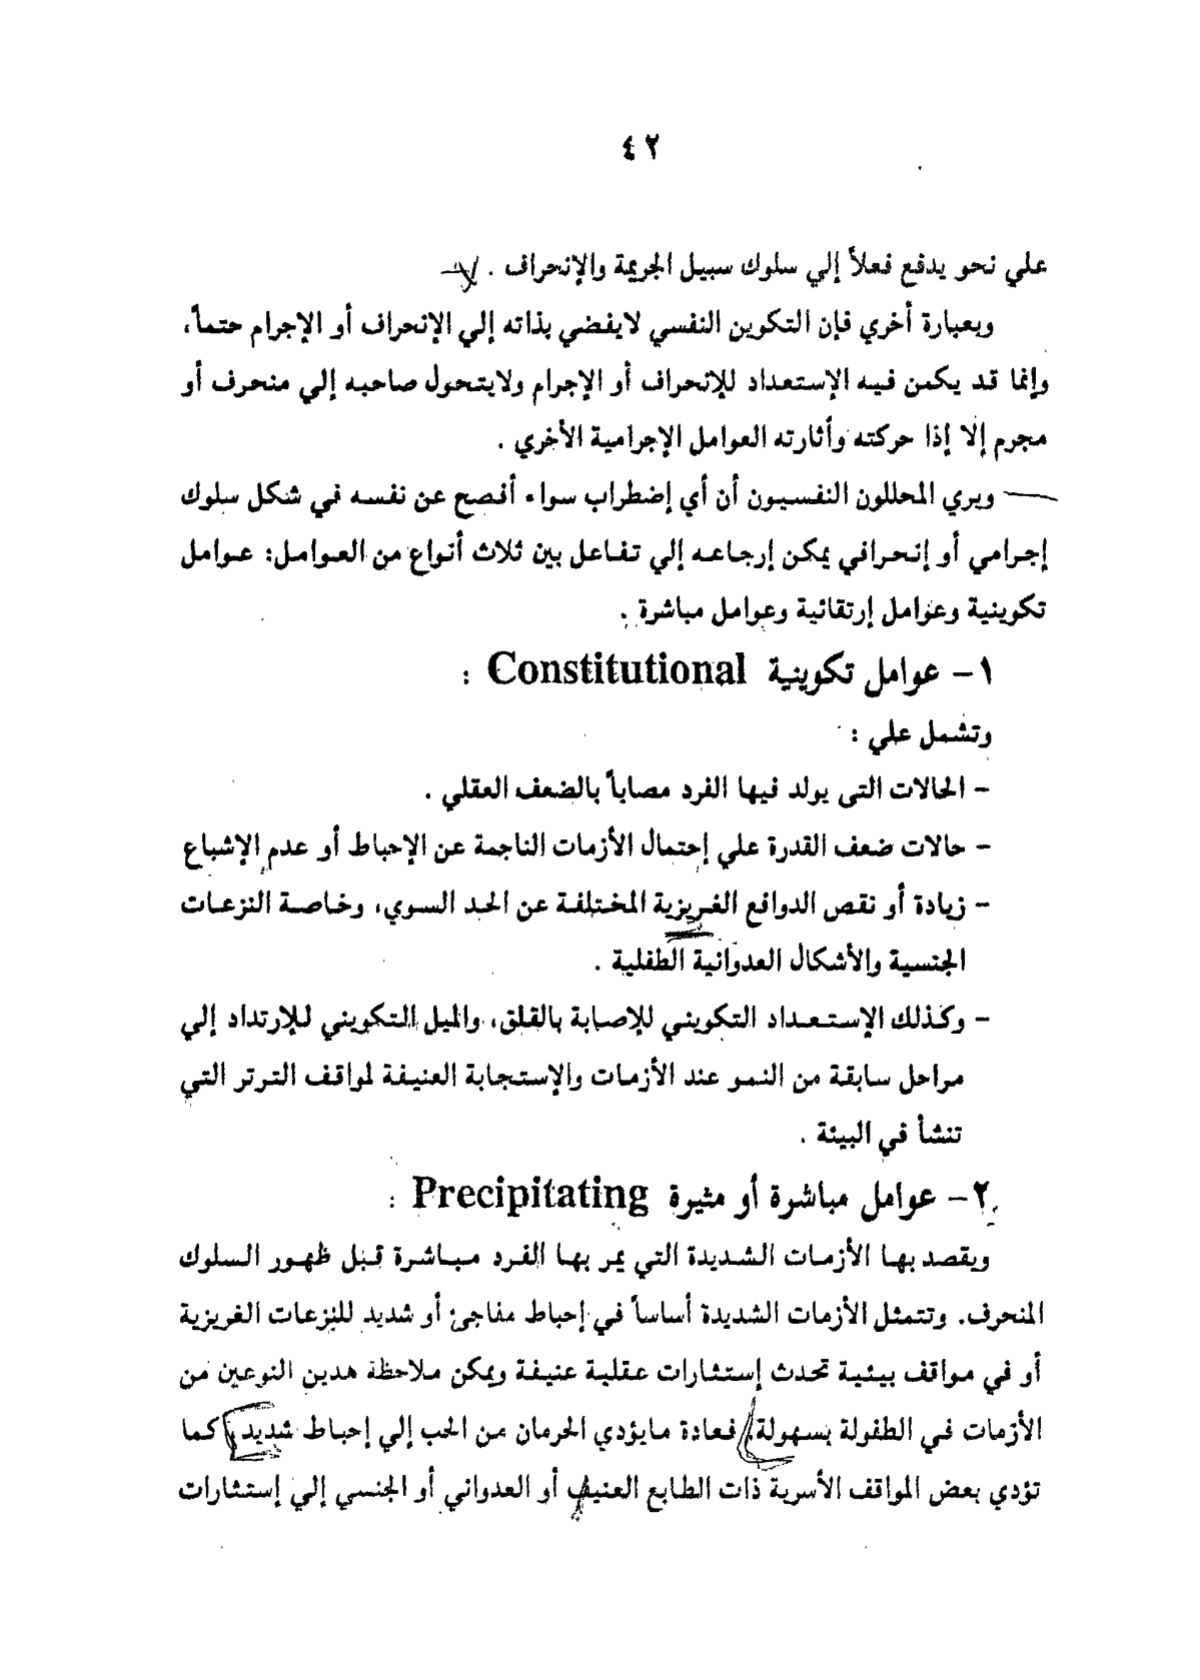 ٤٢
علي نحو يدفع فعلاً إلي سلوك سبيل الجريمة والإنحراف .
وبعبارة أخري فإن التكوين النفسي لايفضي بذاته إلي الإنحراف أو الإجرام حتماً،
وإنما قد يكمن فيه الإستعداد للإنحراف أو الإجرام ولايتحول صاحبه إلي منحرف أو
مجرم إلا إذا حركته وأثارته العوامل الإجرامية الأخري .
ويري المحللون النفسيون أن أي إضطراب سواء أفصح عن نفسه في شكل سلوك
إجرامي أو إنحرافي يمكن إرجاعه إلي تفاعل بين ثلاث أنواع من العوامل: عوامل
تكوينية وعوامل إرتقائية وعوامل مباشرة .
١- عوامل تكوينية Constitutional :
وتشمل علي :
- الحالات التى يولد فيها الفرد مصاباً بالضعف العقلي .
- حالات ضعف القدرة علي إحتمال الأزمات الناجمة عن الإحباط أو عدم الإشباع
- زيادة أو نقص الدوافع الغريزية المختلفة عن الحد السوي، وخاصة النزعات
الجنسية والأشكال العدوانية الطفلية .
- وكذلك الإستعداد التكويني للإصابة بالقلق، والميل التكويني للإرتداد إلي
مراحل سابقة من النمو عند الأزمات والإستجابة العنيفة لمواقف التوتر التي
تنشأ في البيئة .
٢- عوامل مباشرة أو مثيرة Precipitating :
ويقصد بها الأزمات الشديدة التي يمر بها الفرد مباشرة قبل ظهور السلوك
المنحرف. وتتمثل الأزمات الشديدة أساساً في إحباط مفاجئ أو شديد للنزعات الغريزية
أو في مواقف بيئية تحدث إستثارات عقلية عنيفة ويمكن ملاحظة هدين النوعين من
الأزمات في الطفولة بسهولة، فعادة مايؤدي الحرمان من الحب إلي إحباط شديد، كما
تؤدي بعض المواقف الأسرية ذات الطابع العنيف أو العدواني أو الجنسي إلي إستثارات